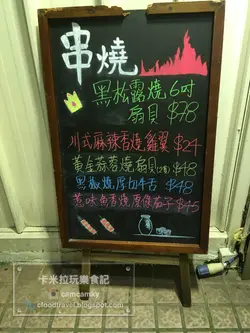 串燒
黑松露燒6吋
扇貝 $78
川式麻辣香燒雞翼 $24
黃金蒜蓉燒扇貝(2隻) $48
黑椒燒厚切牛舌 $48
惹味魚香燒原條茄子 $45
卡米拉玩樂食記
camcamky
cloudtravel.blogspot.com